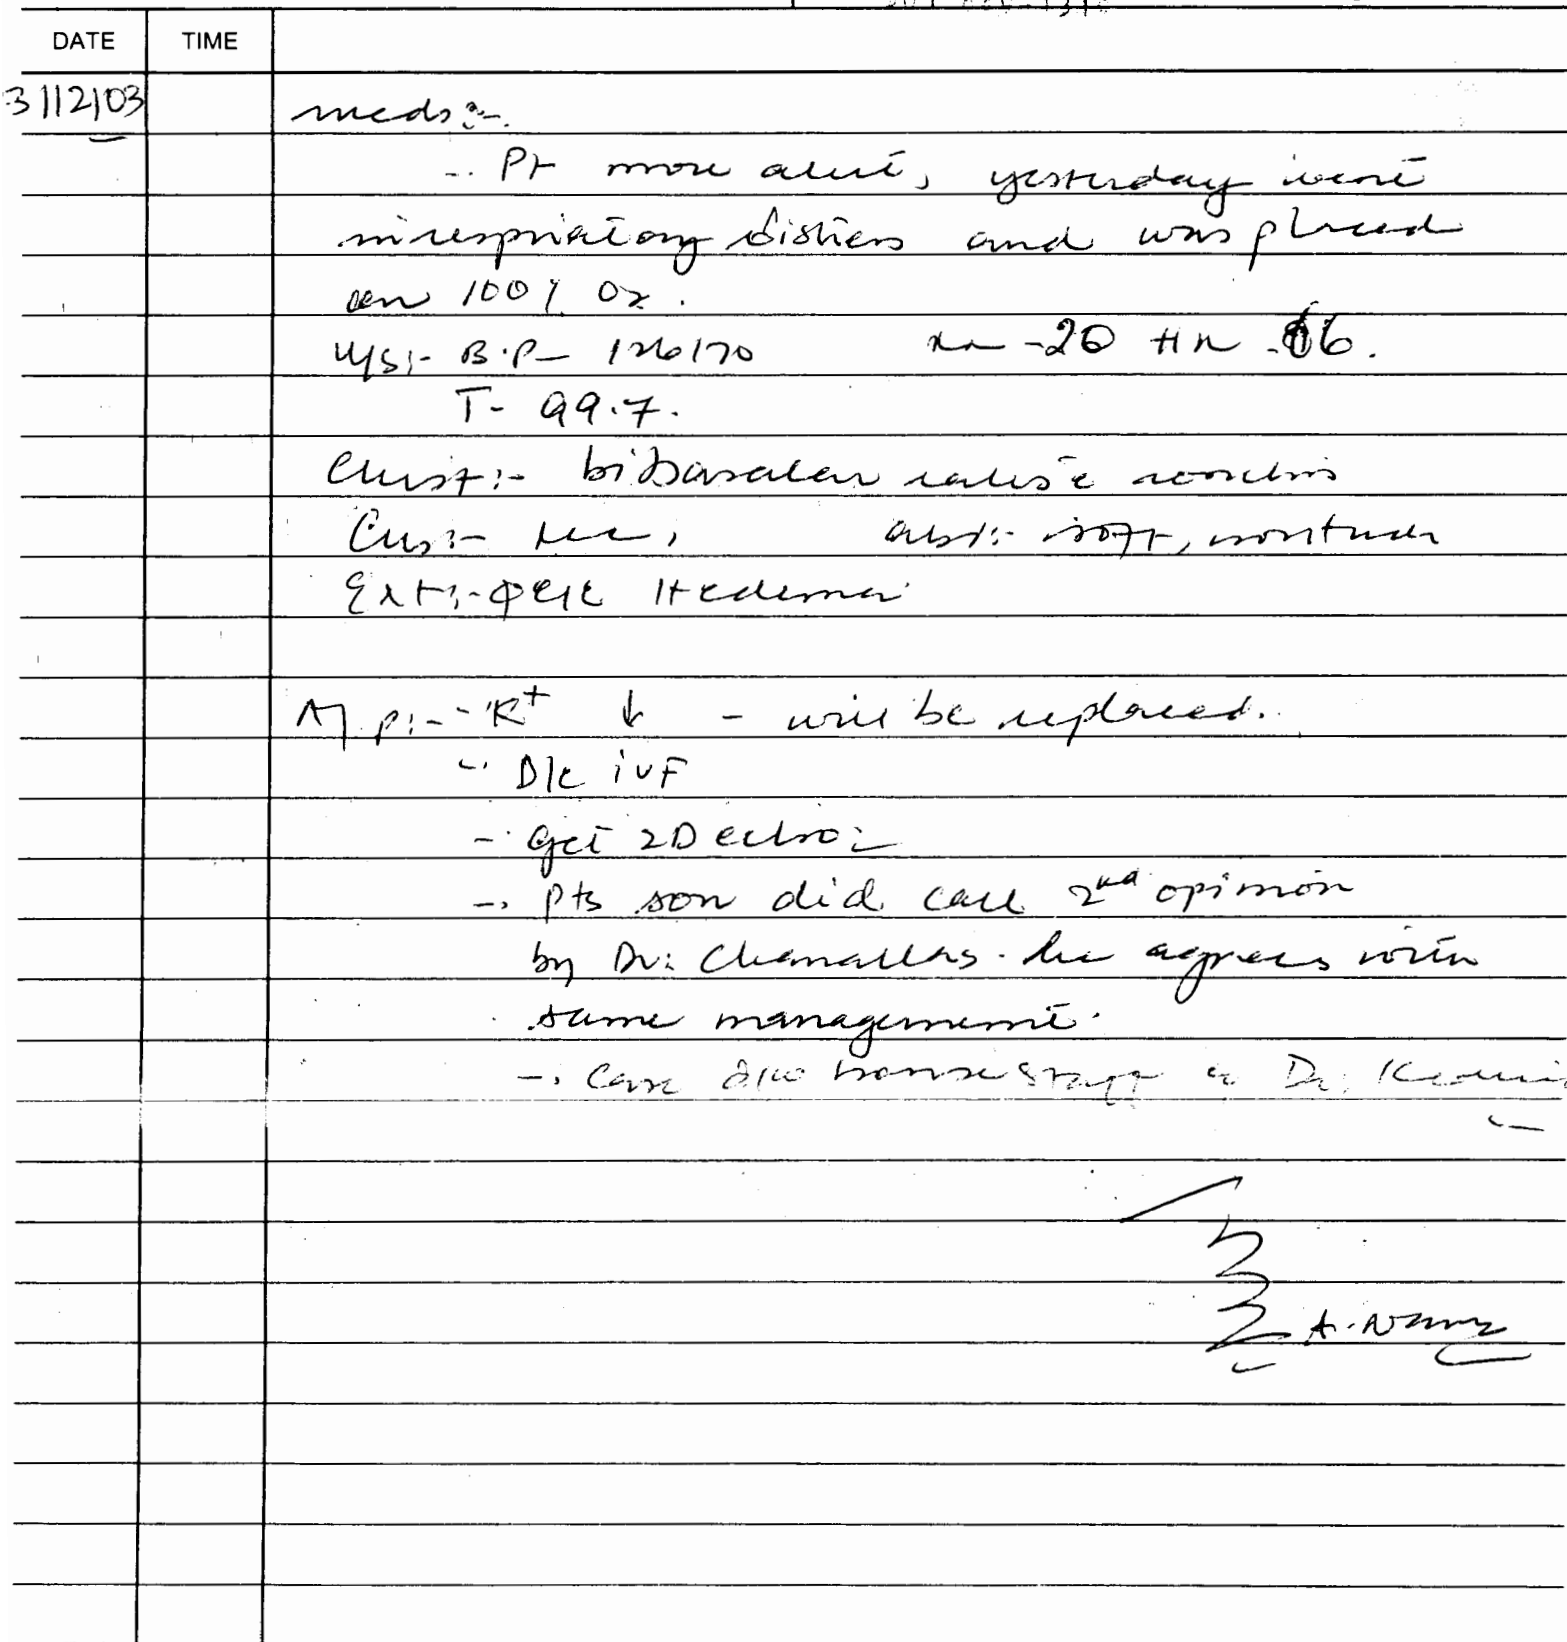 DATE TIME
3/12/03 meds:-
- Pt more alert, yesterday went
in respriatory distress and was placed
on 100% O2.
V/S:- B.P- 126/70 RR -20 HR -86.
T- 99.7.
Chest:- bibasalar rales c ronchis
CVS:- abd:- soft, nontender
Ext:- 1+edema
A/P:- - K+ ↓ - will be replaced.
- D/c IVF
- get 2D echo
- Pts son did call 2nd opinion
by Dr. he agrees with
same management.
- Case d/w house staff & Dr.
A.